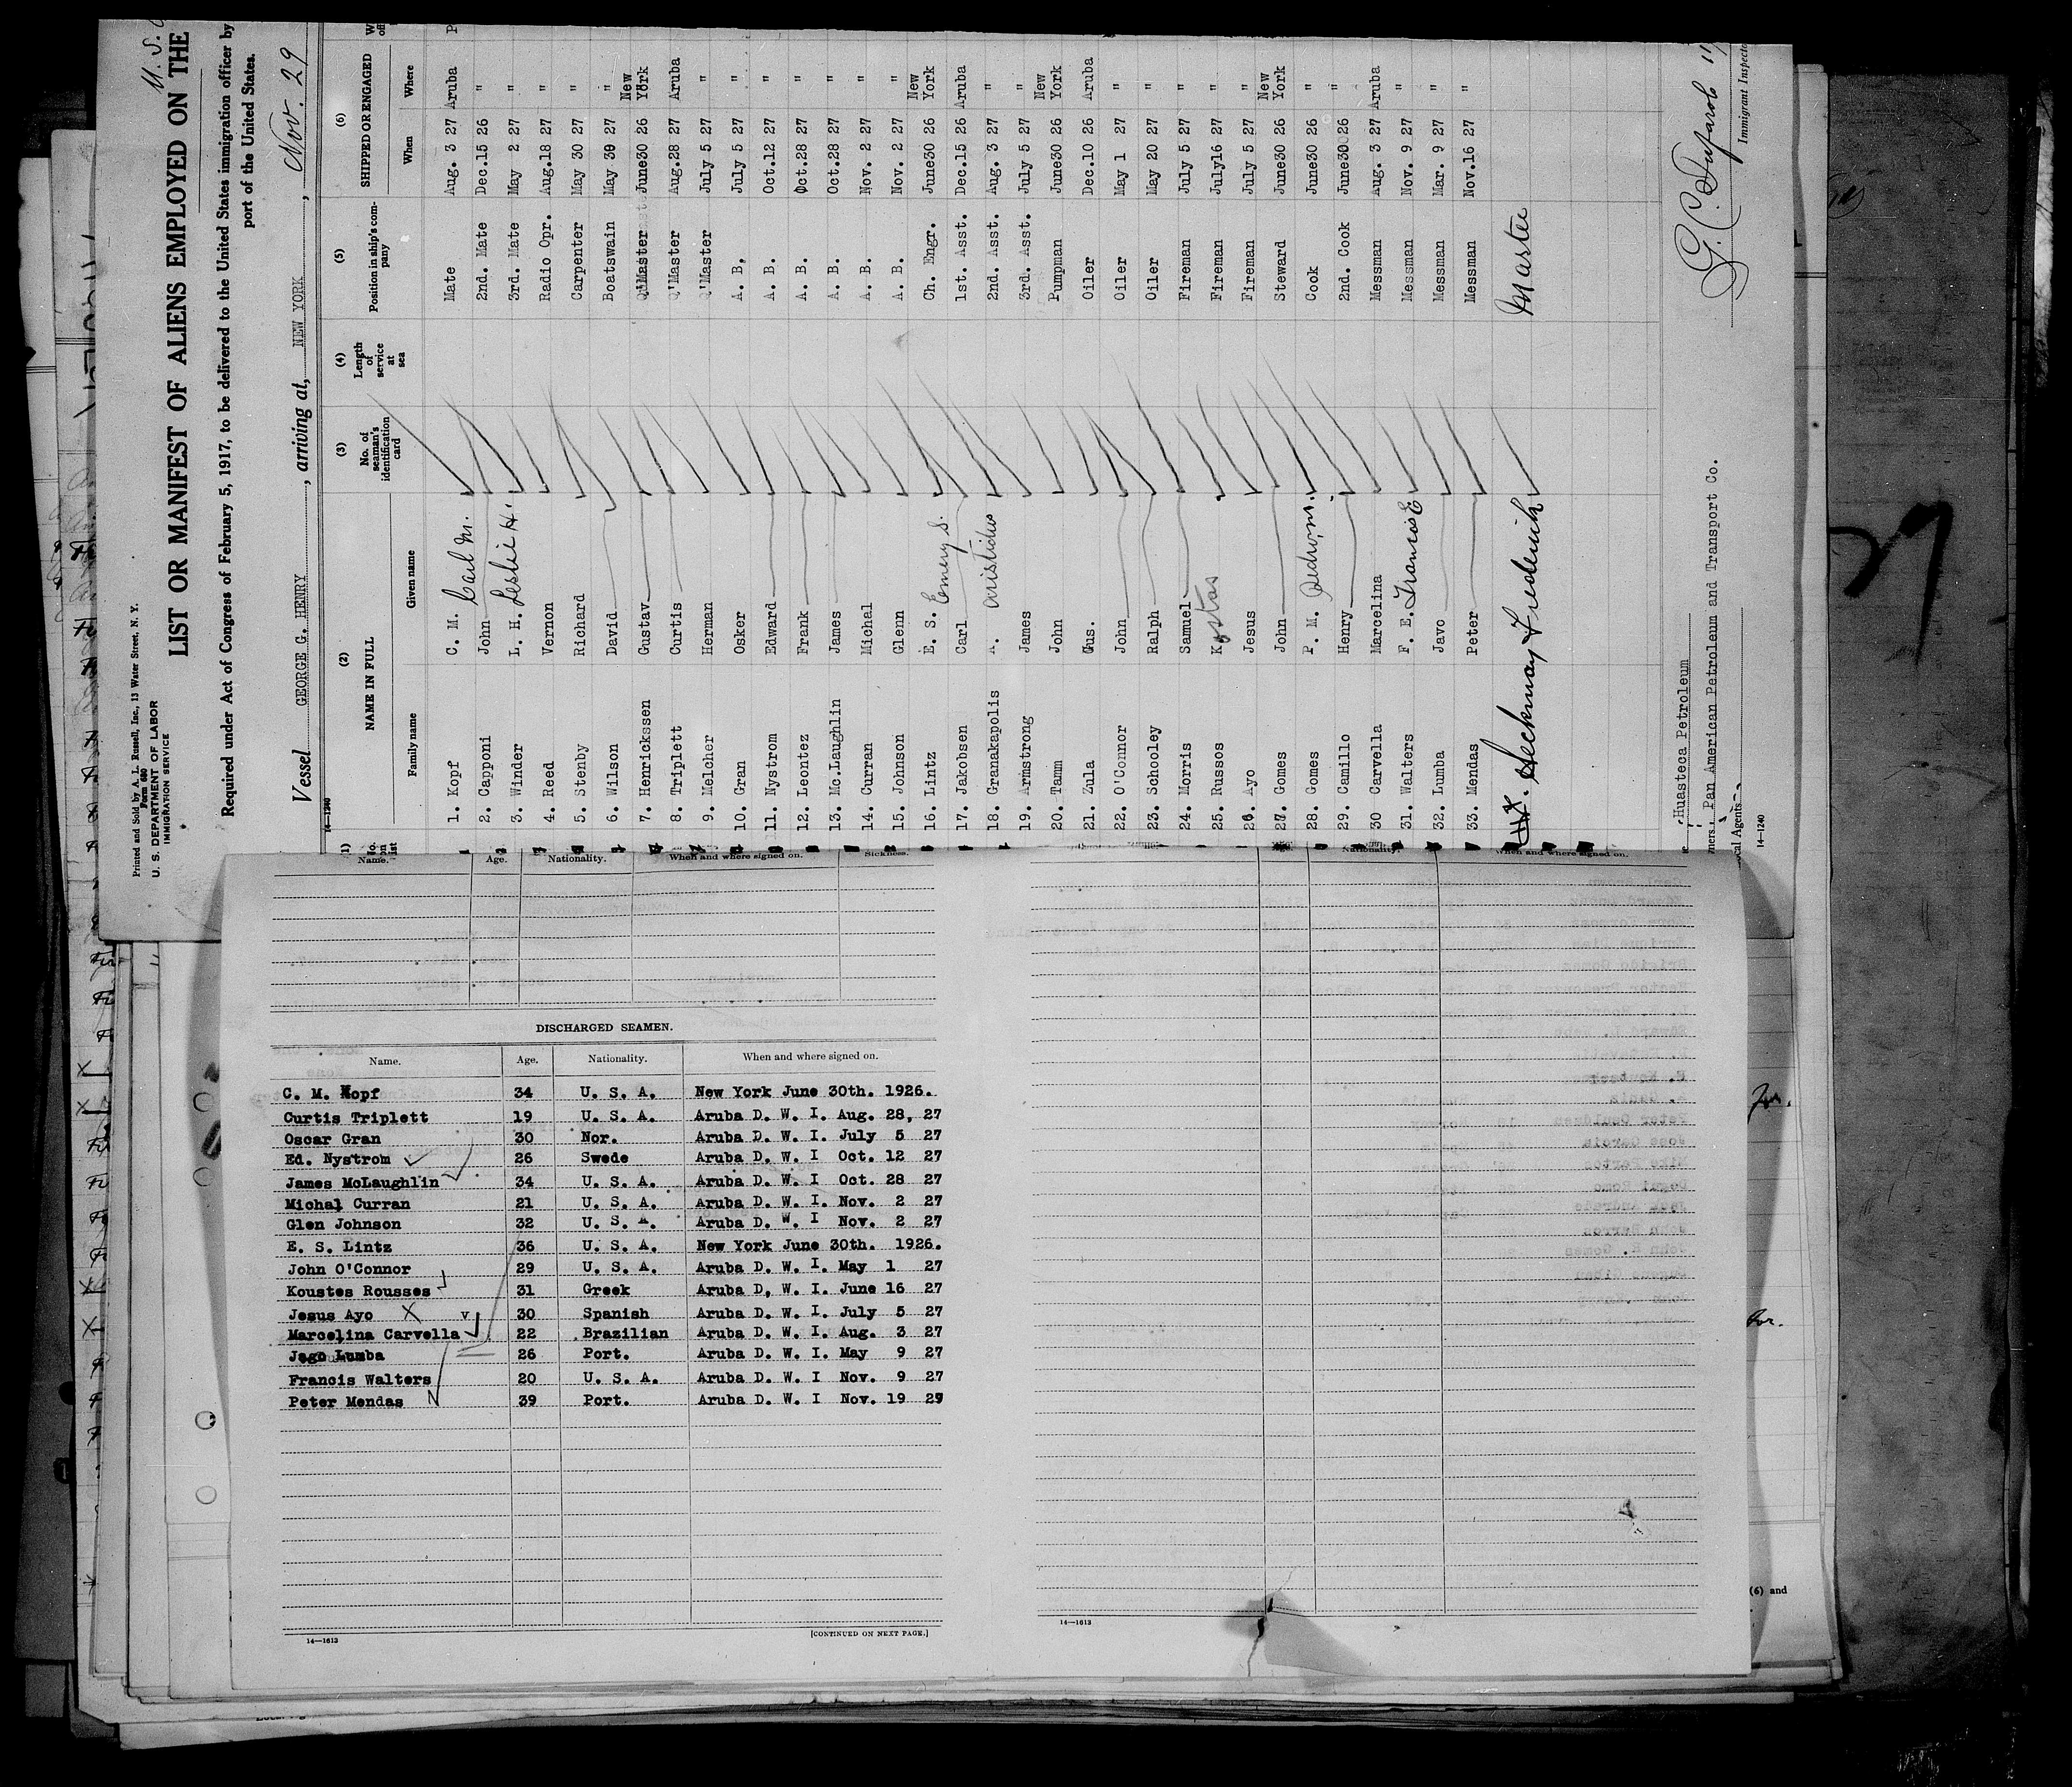 Printed and Sold by A. L. Russell, Inc., 13 Water Street, N. Y.
Form 680
U. S. DEPARTMENT OF LABOR
IMMIGRATION SERVICE
U. S.
LIST OR MANIFEST OF ALIENS EMPLOYED ON THE
Required under Act of Congress of February 5, 1917, to be delivered to the United States immigration officer by
port of the United States.
Vessel GEORGE G. HENRY, arriving at, NEW YORK, Nov. 29
14—1240
(1) (2) (3) (4) (5) (6)
NAME IN FULL No. of seaman's identification card Length of service at sea Position in ship's company SHIPPED OR ENGAGED
Family name Given name When Where
1. Kopf C. M. Carl M. Mate Aug. 3 27 Aruba
2. Capponi John 2nd. Mate Dec.15 26 "
3. Winder L. H. Leslie H. 3rd. Mate May 2 27 "
4. Reed Vernon Radio Opr. Aug.18 27 "
5. Stenby Richard Carpenter May 30 27 "
6. Wilson David Boatswain May 30 27 "
7. Henrickssen Gustav Q'Master June30 26 New York
8. Triplett Curtis Q'Master Aug.28 27 Aruba
9. Melcher Herman Q'Master July 5 27 "
10. Gran Osker A. B. July 5 27 "
11. Nystrom Edward A. B. Oct.12 27 "
12. Leontez Frank A. B. Oct.28 27 "
13. Mc.Laughlin James A. B. Oct.28 27 "
14. Curran Michal A. B. Nov. 2 27 "
15. Johnson Glenn A. B. Nov. 2 27 "
16. Lintz E. S. Emery S. Ch. Engr. June30 26 New York
17. Jakobsen Carl 1st. Asst. Dec.15 26 Aruba
18. Granakapolis A. Aristidus 2nd. Asst. Aug. 3 27 "
19. Armstrong James 3rd. Asst. July 5 27 "
20. Tamm John Pumpman June30 26 New York
21. Zula Gus. Oiler Dec.10 26 Aruba
22. O'Connor John Oiler May 1 27 "
23. Schooley Ralph Oiler May 20 27 "
24. Morris Samuel Fireman July 5 27 "
25. Russos Kostas Fireman July16 27 "
26. Ayo Jesus Fireman July 5 27 "
27. Gomes John Steward June30 26 New York
28. Gomes P. M. Pedro M. Cook June30 26 "
29. Camillo Henry 2nd. Cook June30 26 "
30 Carvella Marcelina Messman Aug. 3 27 Aruba
31. Walters F. E. Francis E Messman Nov. 9 27 "
32. Lumba Javo Messman Mar. 9 27 "
33. Mendas Peter Messman Nov.16 27 "
Heckman Frederick Master
Huasteca Petroleum
Pan American Petroleum and Transport Co.
Immigrant Inspector
14—1240
Name. Age. Nationality. When and where signed on. Sickness.
DISCHARGED SEAMEN.
Name. Age. Nationality. When and where signed on.
C. M. Kopf 34 U. S. A. New York June 30th. 1926.
Curtis Triplett 19 U. S. A. Aruba D. W. I. Aug. 28, 27
Oscar Gran 30 Nor. Aruba D. W. I. July 5 27
Ed. Nystrom 26 Swede Aruba D. W. I Oct. 12 27
James McLaughlin 34 U. S. A. Aruba D. W. I Oct. 28 27
Michal Curran 21 U. S. A. Aruba D. W. I. Nov. 2 27
Glen Johnson 32 U. S. A. Aruba D. W. I Nov. 2 27
E. S. Lintz 36 U. S. A. New York June 30th. 1926.
John O'Connor 29 U. S. A. Aruba D. W. I. May 1 27
Koustes Rousses 31 Greek Aruba D, W. I. June 16 27
Jesus Ayo X v 30 Spanish Aruba D. W. I. July 5 27
Marcelina Carvella 22 Brazilian Aruba D. W. I. Aug. 3 27
Jago Lumba 26 Port. Aruba D. W. I. May 9 27
Francis Walters 20 U. S. A. Aruba D. W. I Nov. 9 27
Peter Mendas 39 Port. Aruba D. W. I Nov. 19 27
14—1613 [CONTINUED ON NEXT PAGE.]
14—1613
(6) and